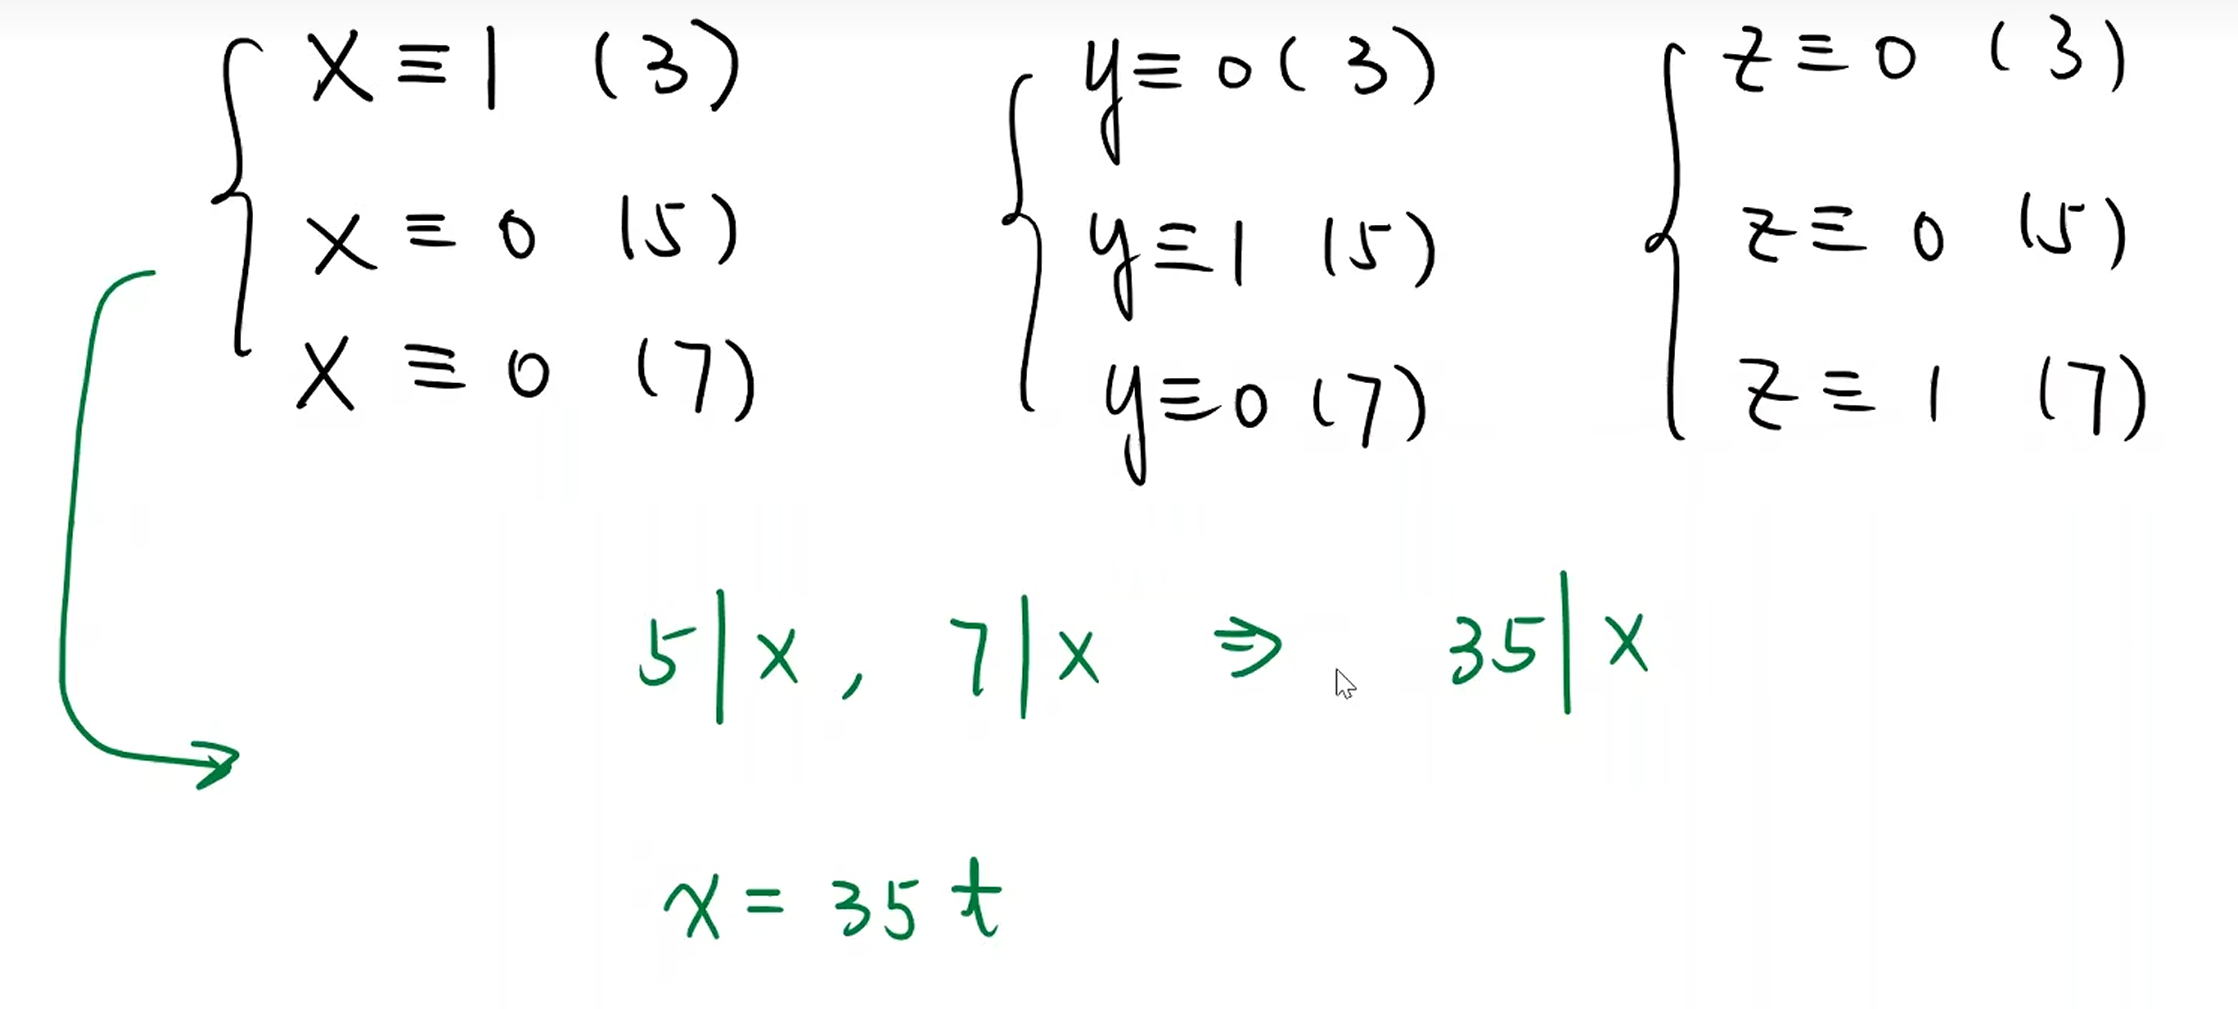 x ≡ 1 (3)
x ≡ 0 (5)
x ≡ 0 (7)
y ≡ 0 (3)
y ≡ 1 (5)
y ≡ 0 (7)
z ≡ 0 (3)
z ≡ 0 (5)
z ≡ 1 (7)
5 | x , 7 | x ⇒ 35 | x
x = 35 t